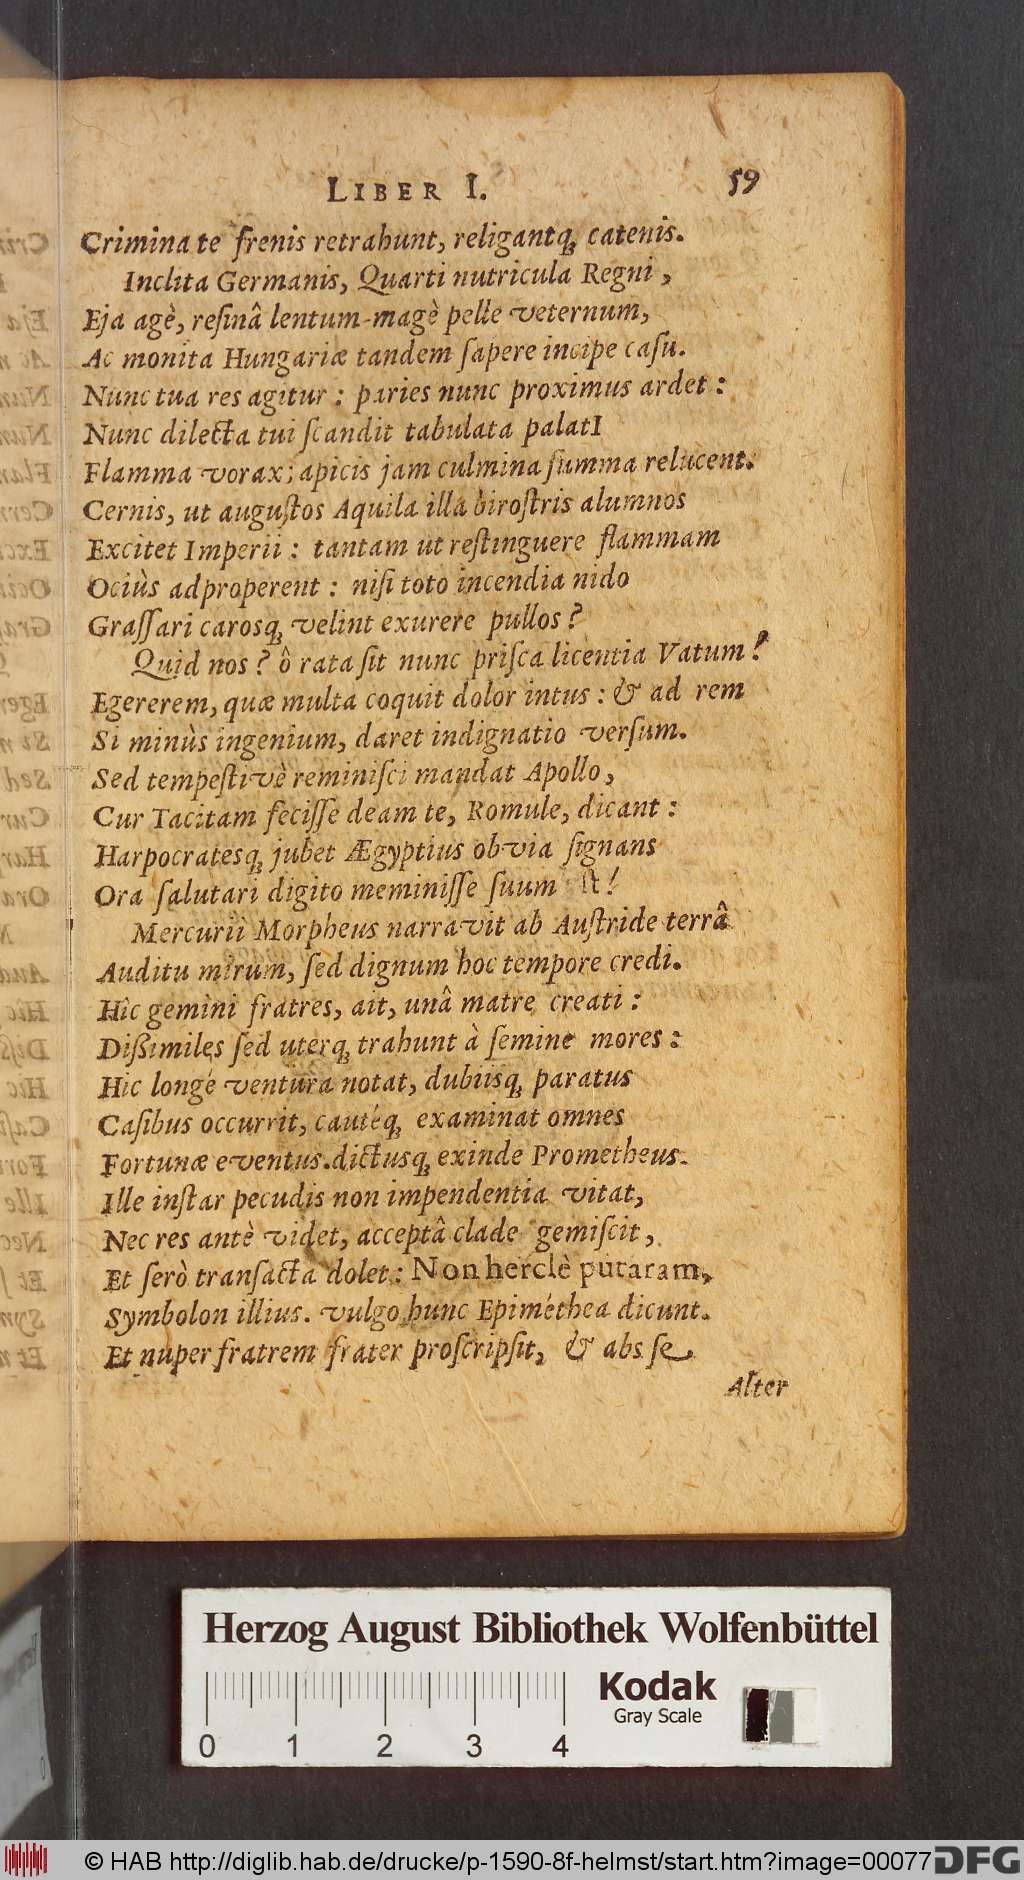 LIBER I. 59
Crimina te frenis retrahunt, religantq; catenis.
Inclita Germanis, Quarti nutricula Regni,
Eja agè, resinâ lentum magè pelle veternum,
Ac monita Hungariæ tandem sapere incipe casu.
Nunc tua res agitur: paries nunc proximus ardet:
Nunc dilecta tui scandit tabulata palatI
Flamma vorax; apicis jam culmina summa relucent.
Cernis, ut augustos Aquila illa birostris alumnos
Excitet Imperii: tantam ut restinguere flammam
Ociùs adproperent: nisi toto incendia nido
Grassari carosq; velint exurere pullos?
Quid nos? ô rata sit nunc prisca licentia Vatum!
Egererem, quæ multa coquit dolor intus: & ad rem
Si minùs ingenium, daret indignatio versum.
Sed tempestivè reminisci mandat Apollo,
Cur Tacitam fecisse deam te, Romule, dicant:
Harpocratesq; jubet Ægyptius obvia signans
Ora salutari digito meminisse suum st!
Mercurii Morpheus narravit ab Austride terrâ
Auditu mirum, sed dignum hoc tempore credi.
Hîc gemini fratres, ait, unâ matre creati:
Dißimiles sed uterq; trahunt à semine mores:
Hic longé ventura notat, dubiisq; paratus
Casibus occurrit, cautéq; examinat omnes
Fortunæ eventus. dictusq; exinde Prometheus.
Ille instar pecudis non impendentia vitat,
Nec res antè videt, acceptâ clade gemiscit,
Et serò transacta dolet: Non herclè putaram,
Symbolon illius. vulgo hunc Epiméthea dicunt.
Et nuper fratrem frater proscripsit, & abs se
Alter
Herzog August Bibliothek Wolfenbüttel
Kodak
Gray Scale
0 1 2 3 4
© HAB http://diglib.hab.de/drucke/p-1590-8f-helmst/start.htm?image=00077
DFG